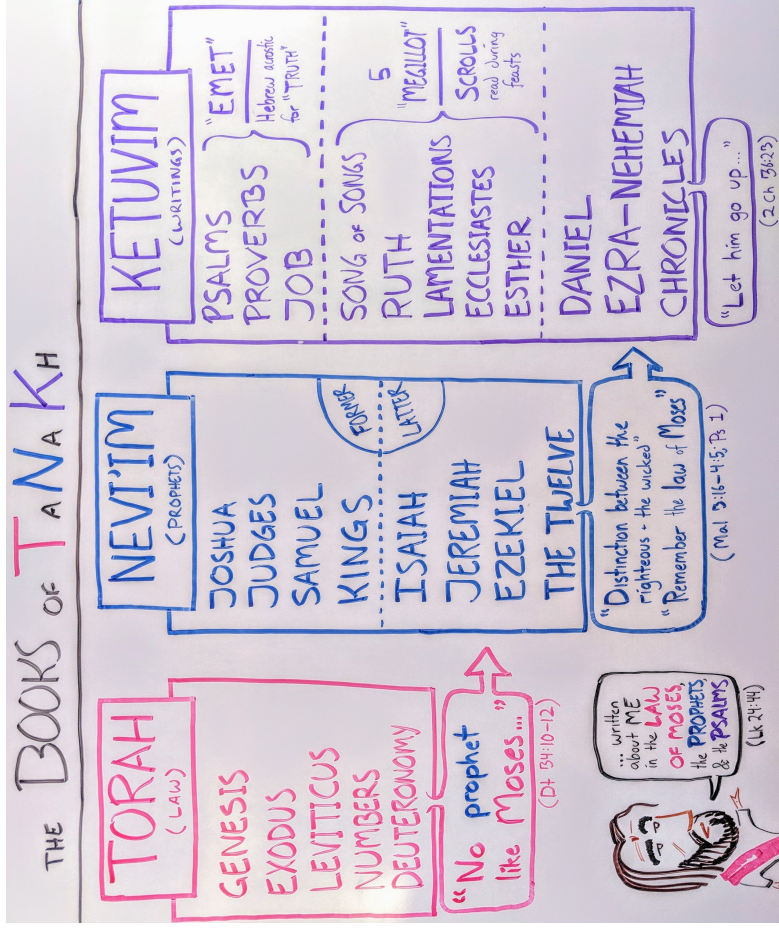 THE BOOKS OF TANAKH
TORAH
(LAW)
GENESIS
EXODUS
LEVITICUS
NUMBERS
DEUTERONOMY
"No prophet
like Moses..."
(Dt 34:10-12)
NEVI'IM
(PROPHETS)
JOSHUA
JUDGES
SAMUEL
KINGS
FORMER
LATTER
ISAIAH
JEREMIAH
EZEKIEL
THE TWELVE
"Distinction between the
righteous + the wicked"
"Remember the law of Moses"
(Mal 3:16-4:5; Ps 1)
KETUVIM
(WRITINGS)
PSALMS
PROVERBS
JOB
"EMET"
Hebrew acrostic
for "TRUTH"
SONG OF SONGS
RUTH
LAMENTATIONS
ECCLESIASTES
ESTHER
5
"MEGILLOT"
SCROLLS
read during
feasts
DANIEL
EZRA-NEHEMIAH
CHRONICLES
"Let him go up..."
(2 Ch 36:23)
... written
about ME
in the LAW
OF MOSES,
the PROPHETS,
& the PSALMS
(Lk 24:44)